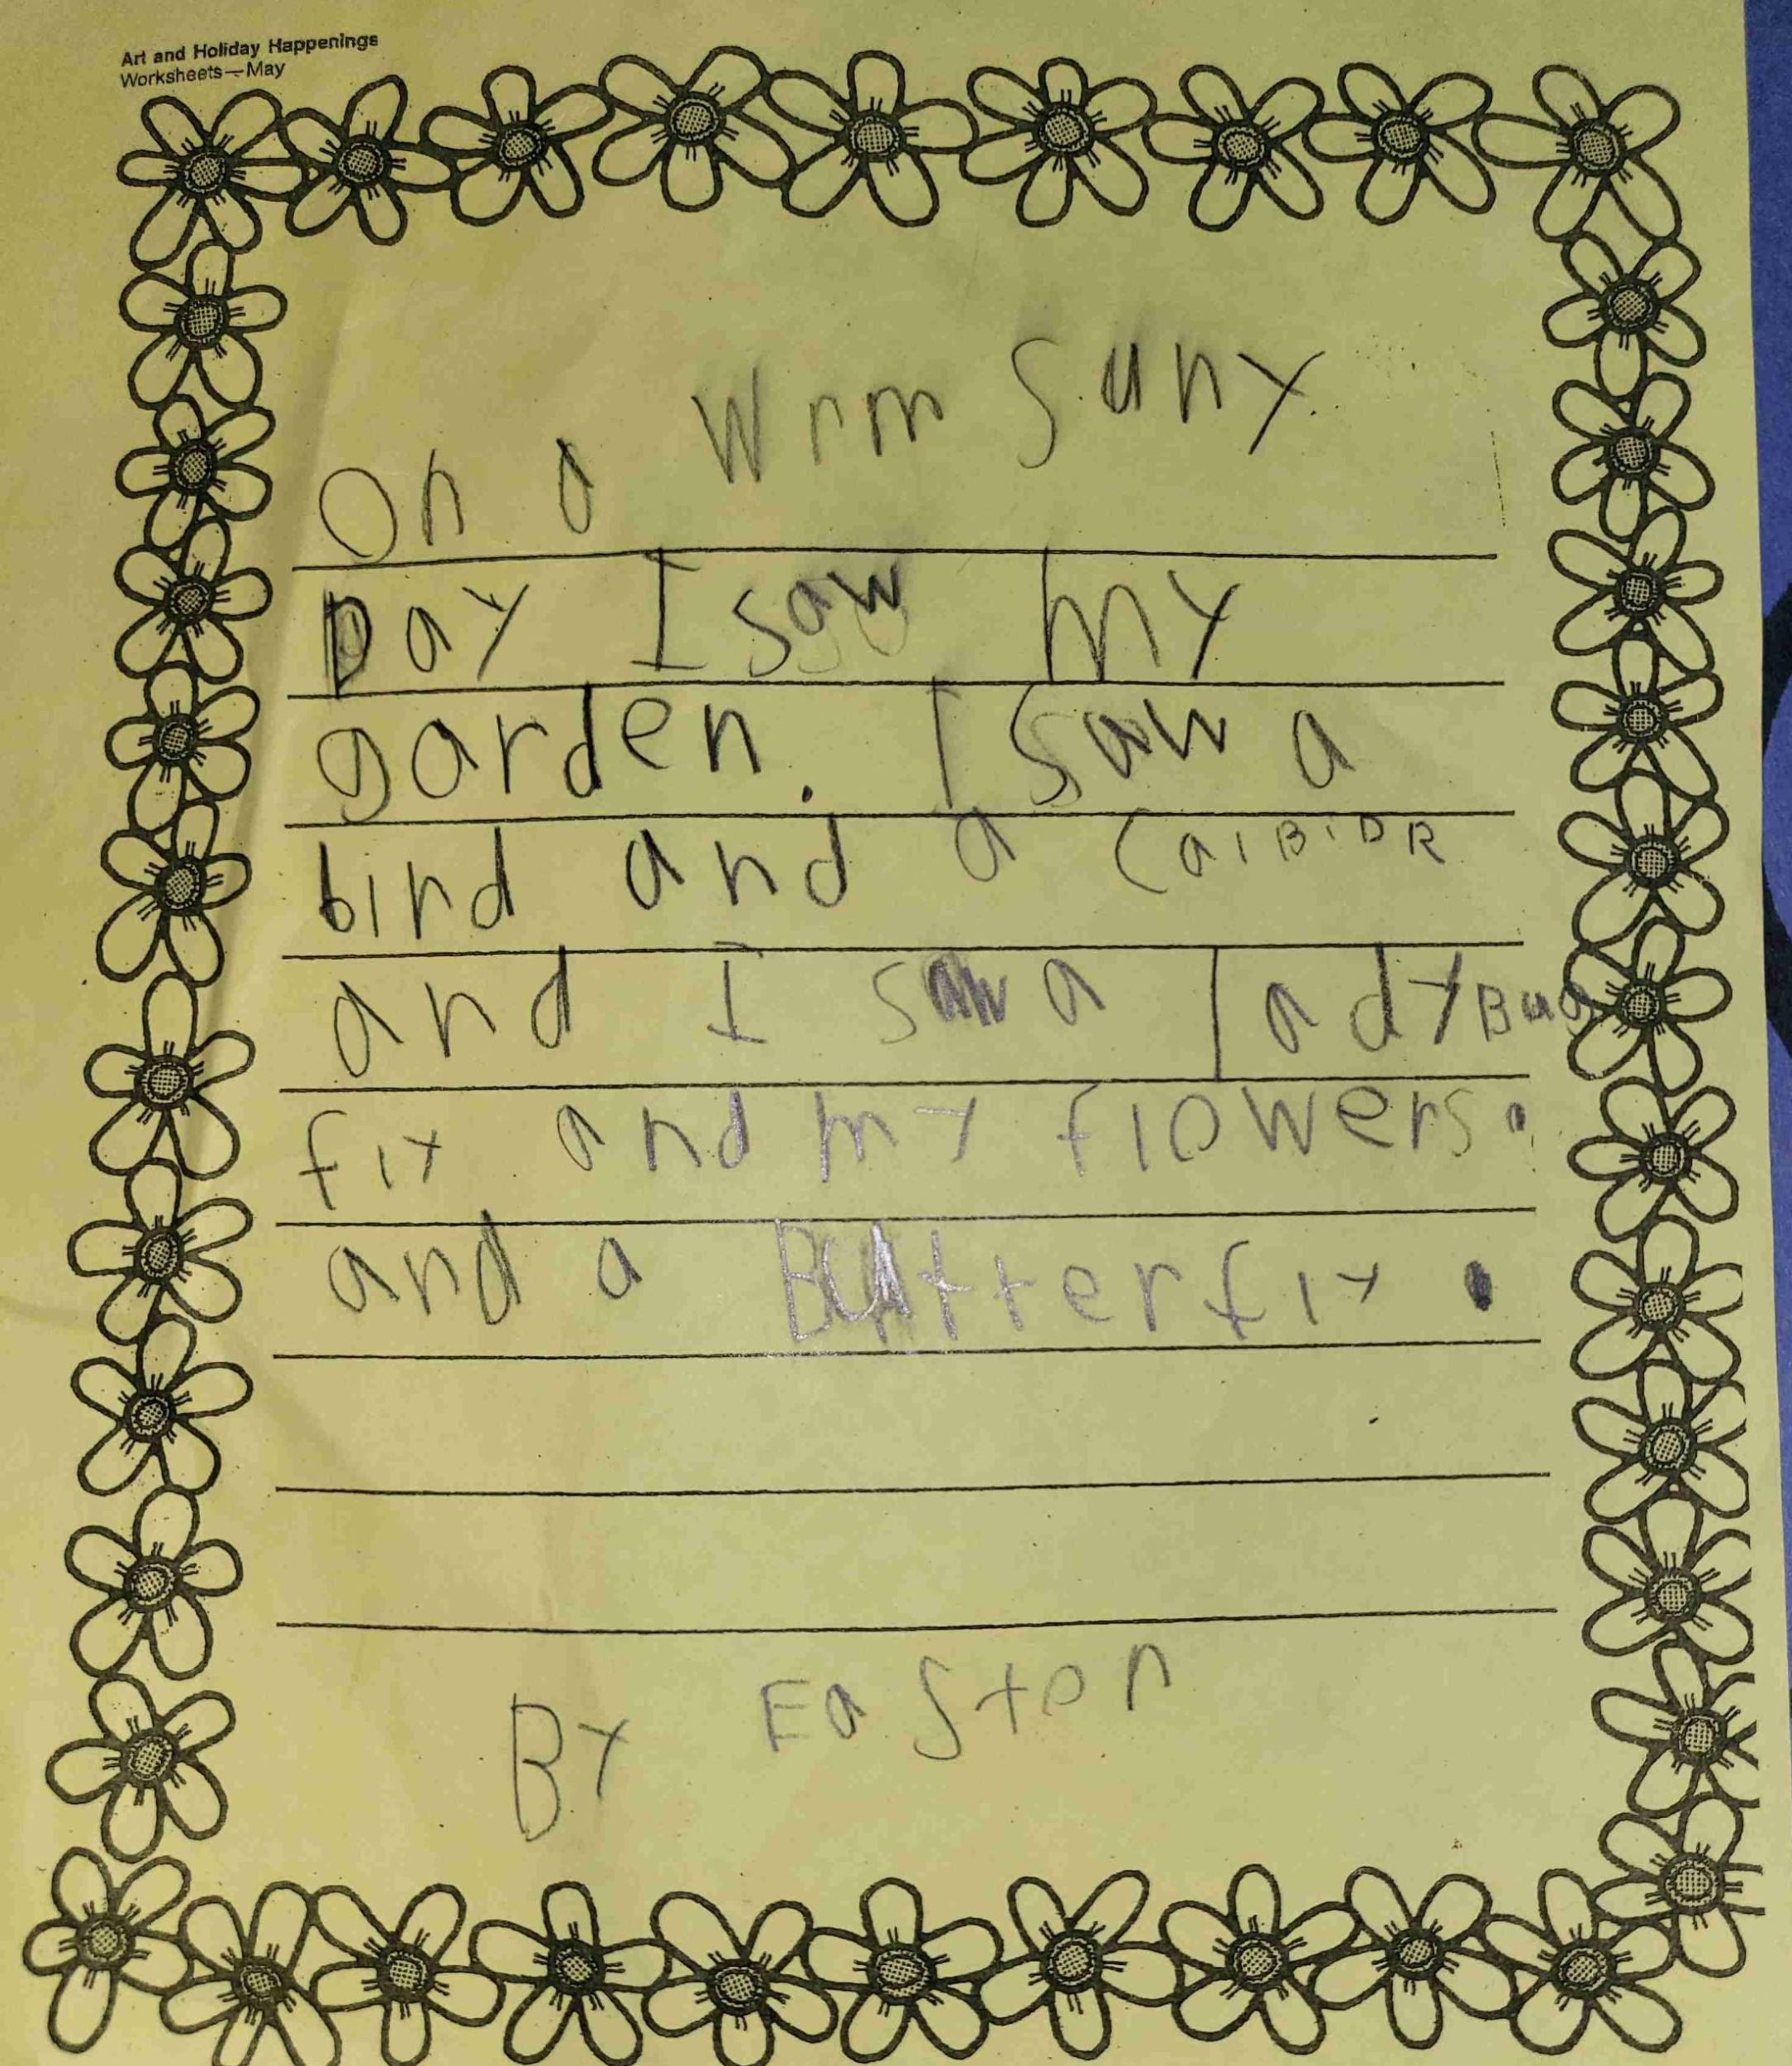 Art and Holiday Happenings
Worksheets—May
On a Wrm Suny
Day I saw my
garden. I Saw a
bird and a CalBiDR
and I saw a ladyBug
fly and my flowers.
and a Butterfly.
By Easton